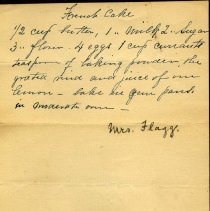 French Cake
1/2 cup butter, 1 " milk, 2 " sugar
3 " flour 4 eggs 1 cup currants
teaspoon of baking powder, the
grated rind and juice of one
lemon - bake in gem pans
in moderate oven -
Mrs. Flagg.